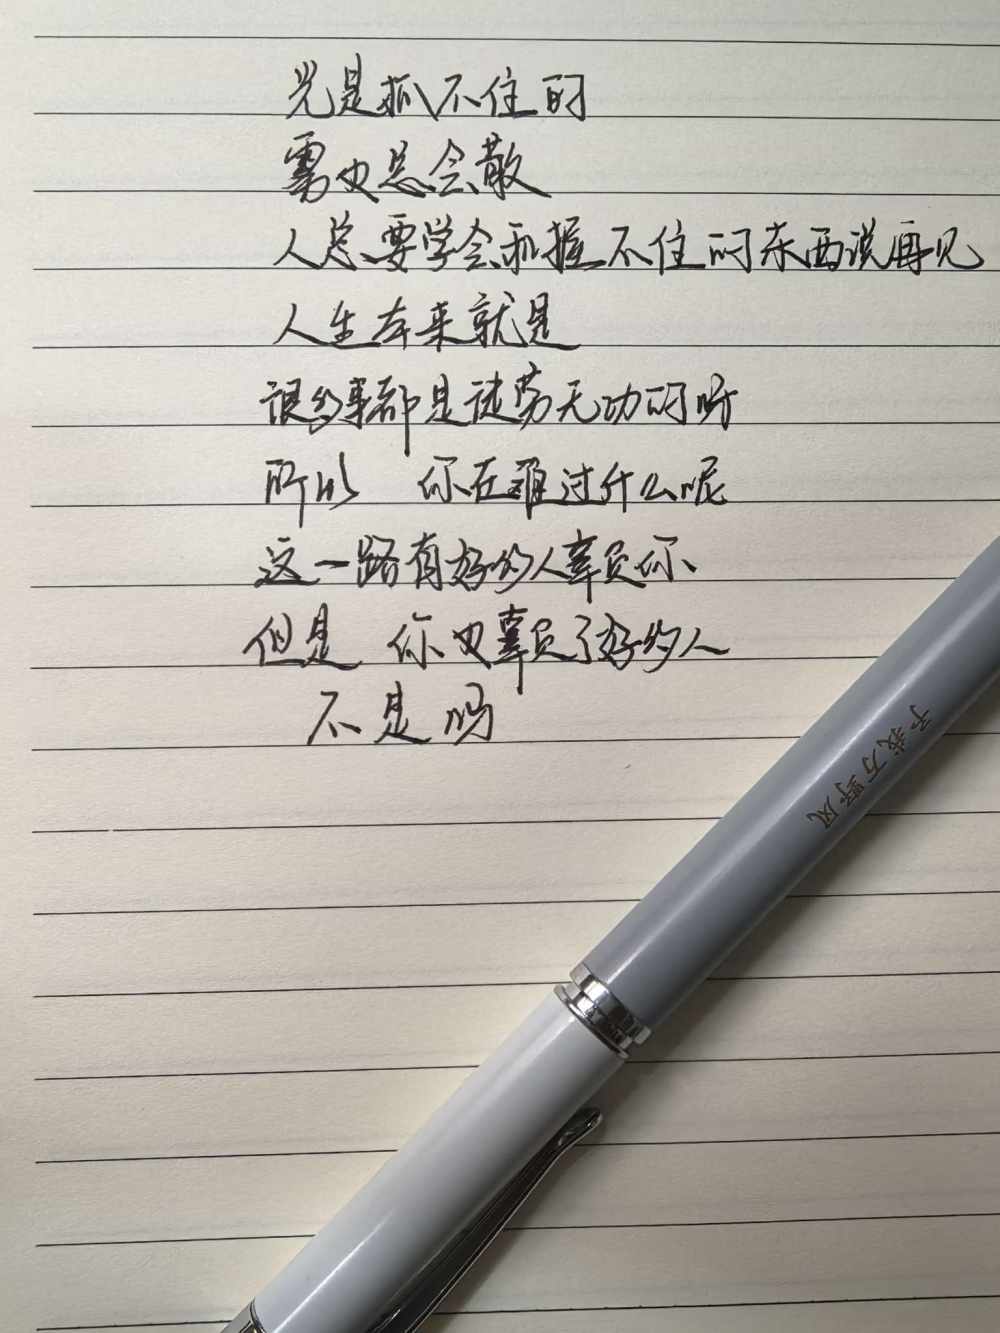 光是抓不住的
雾也总会散
人总要学会和握不住的东西说再见
人生本来就是
很多事都是徒劳无功的呀
所以 你在难过什么呢
这一路有好多人辜负你、
但是 你也辜负了好多人
不是吗
予我万野风